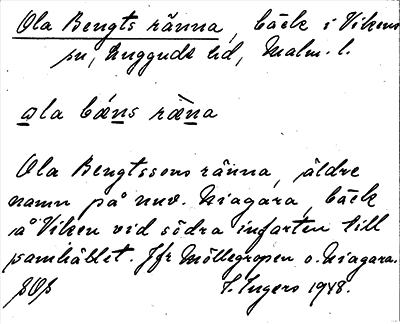 Ola Bengts ränna, bäck i Vikens
sn, Luggude hd, Malm. l.
ola bæns ræna
Ola Bengtssons ränna, äldre
namn på nuv. Niagara, bäck
å Viken vid södra infarten till
samhället. Jfr Möllegropen o. Niagara.
I. Ingers 1948.